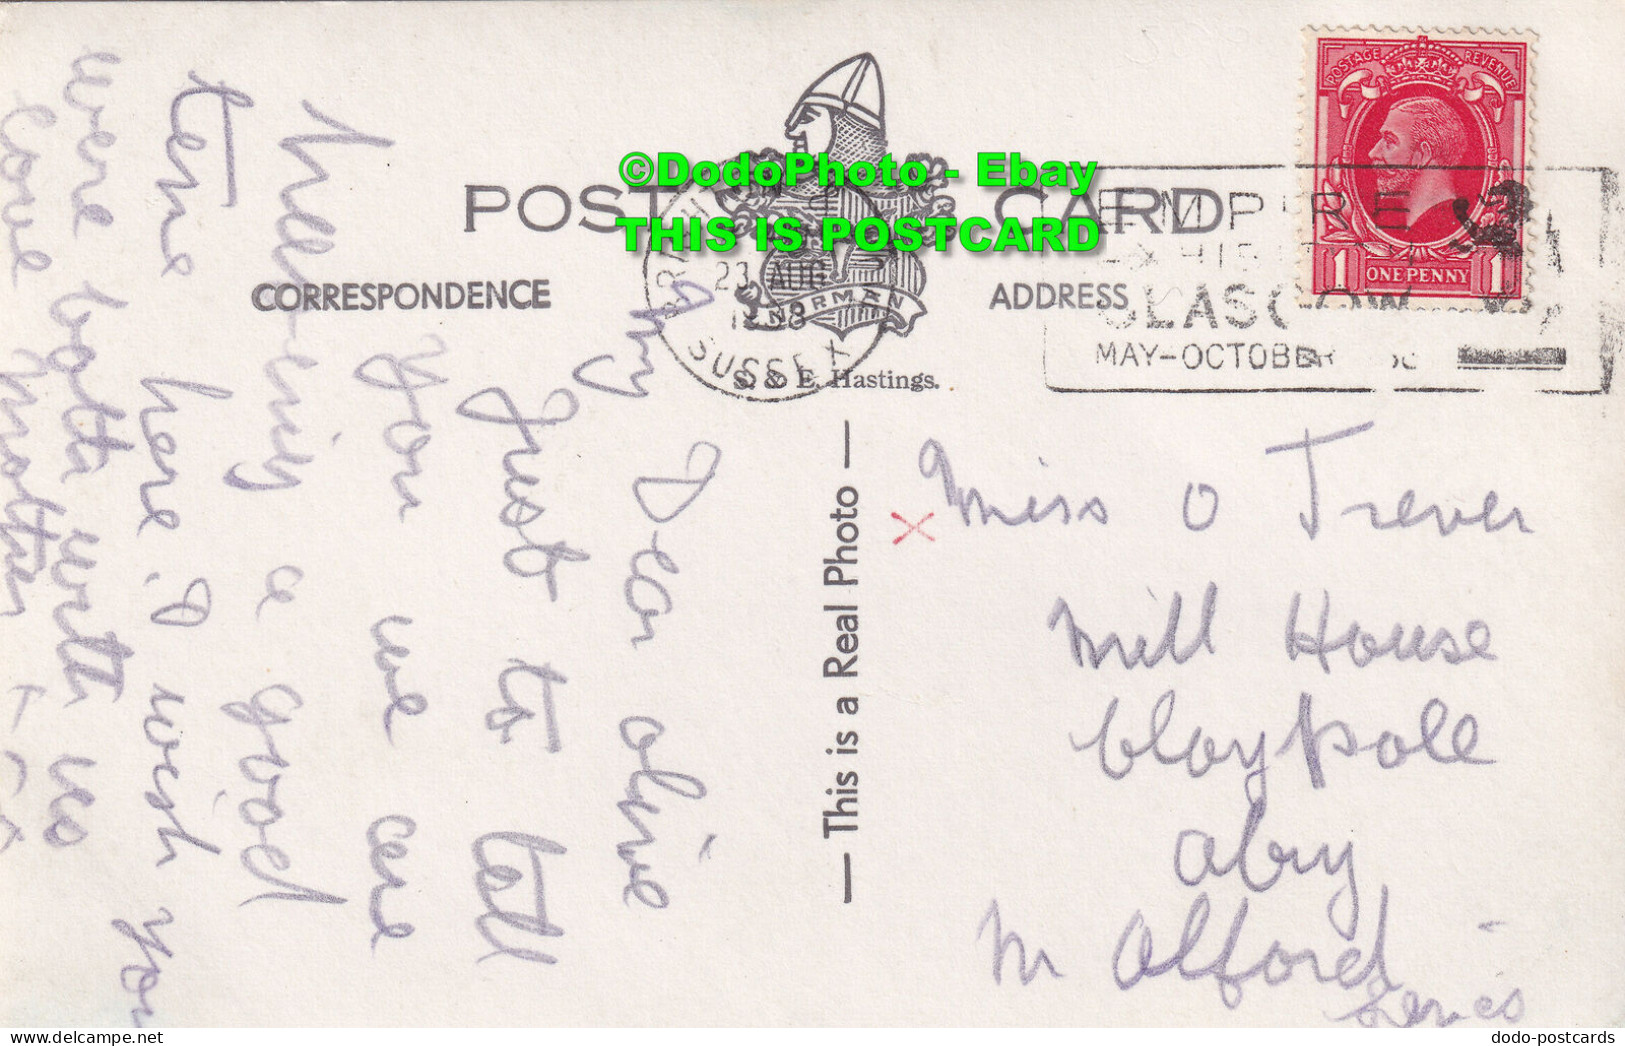 POST CARD
©DodoPhoto - Ebay
THIS IS POSTCARD
CORRESPONDENCE
ADDRESS
NORMAN
S. & E. Hastings.
— This is a Real Photo —
POSTAGE REVENUE
1 ONE PENNY 1
23 AUG
1938
SUSSEX
EMPIRE
EXHIBITION
GLASGOW
MAY–OCTOBER
My Dear Olive
Just to tell
you we are
having a good
time here. I wish you
were both with us
Love Mother
x
Miss O Trever
Mill House
Claypole
Aby
Nr Alford
Lincs
dodo-postcards